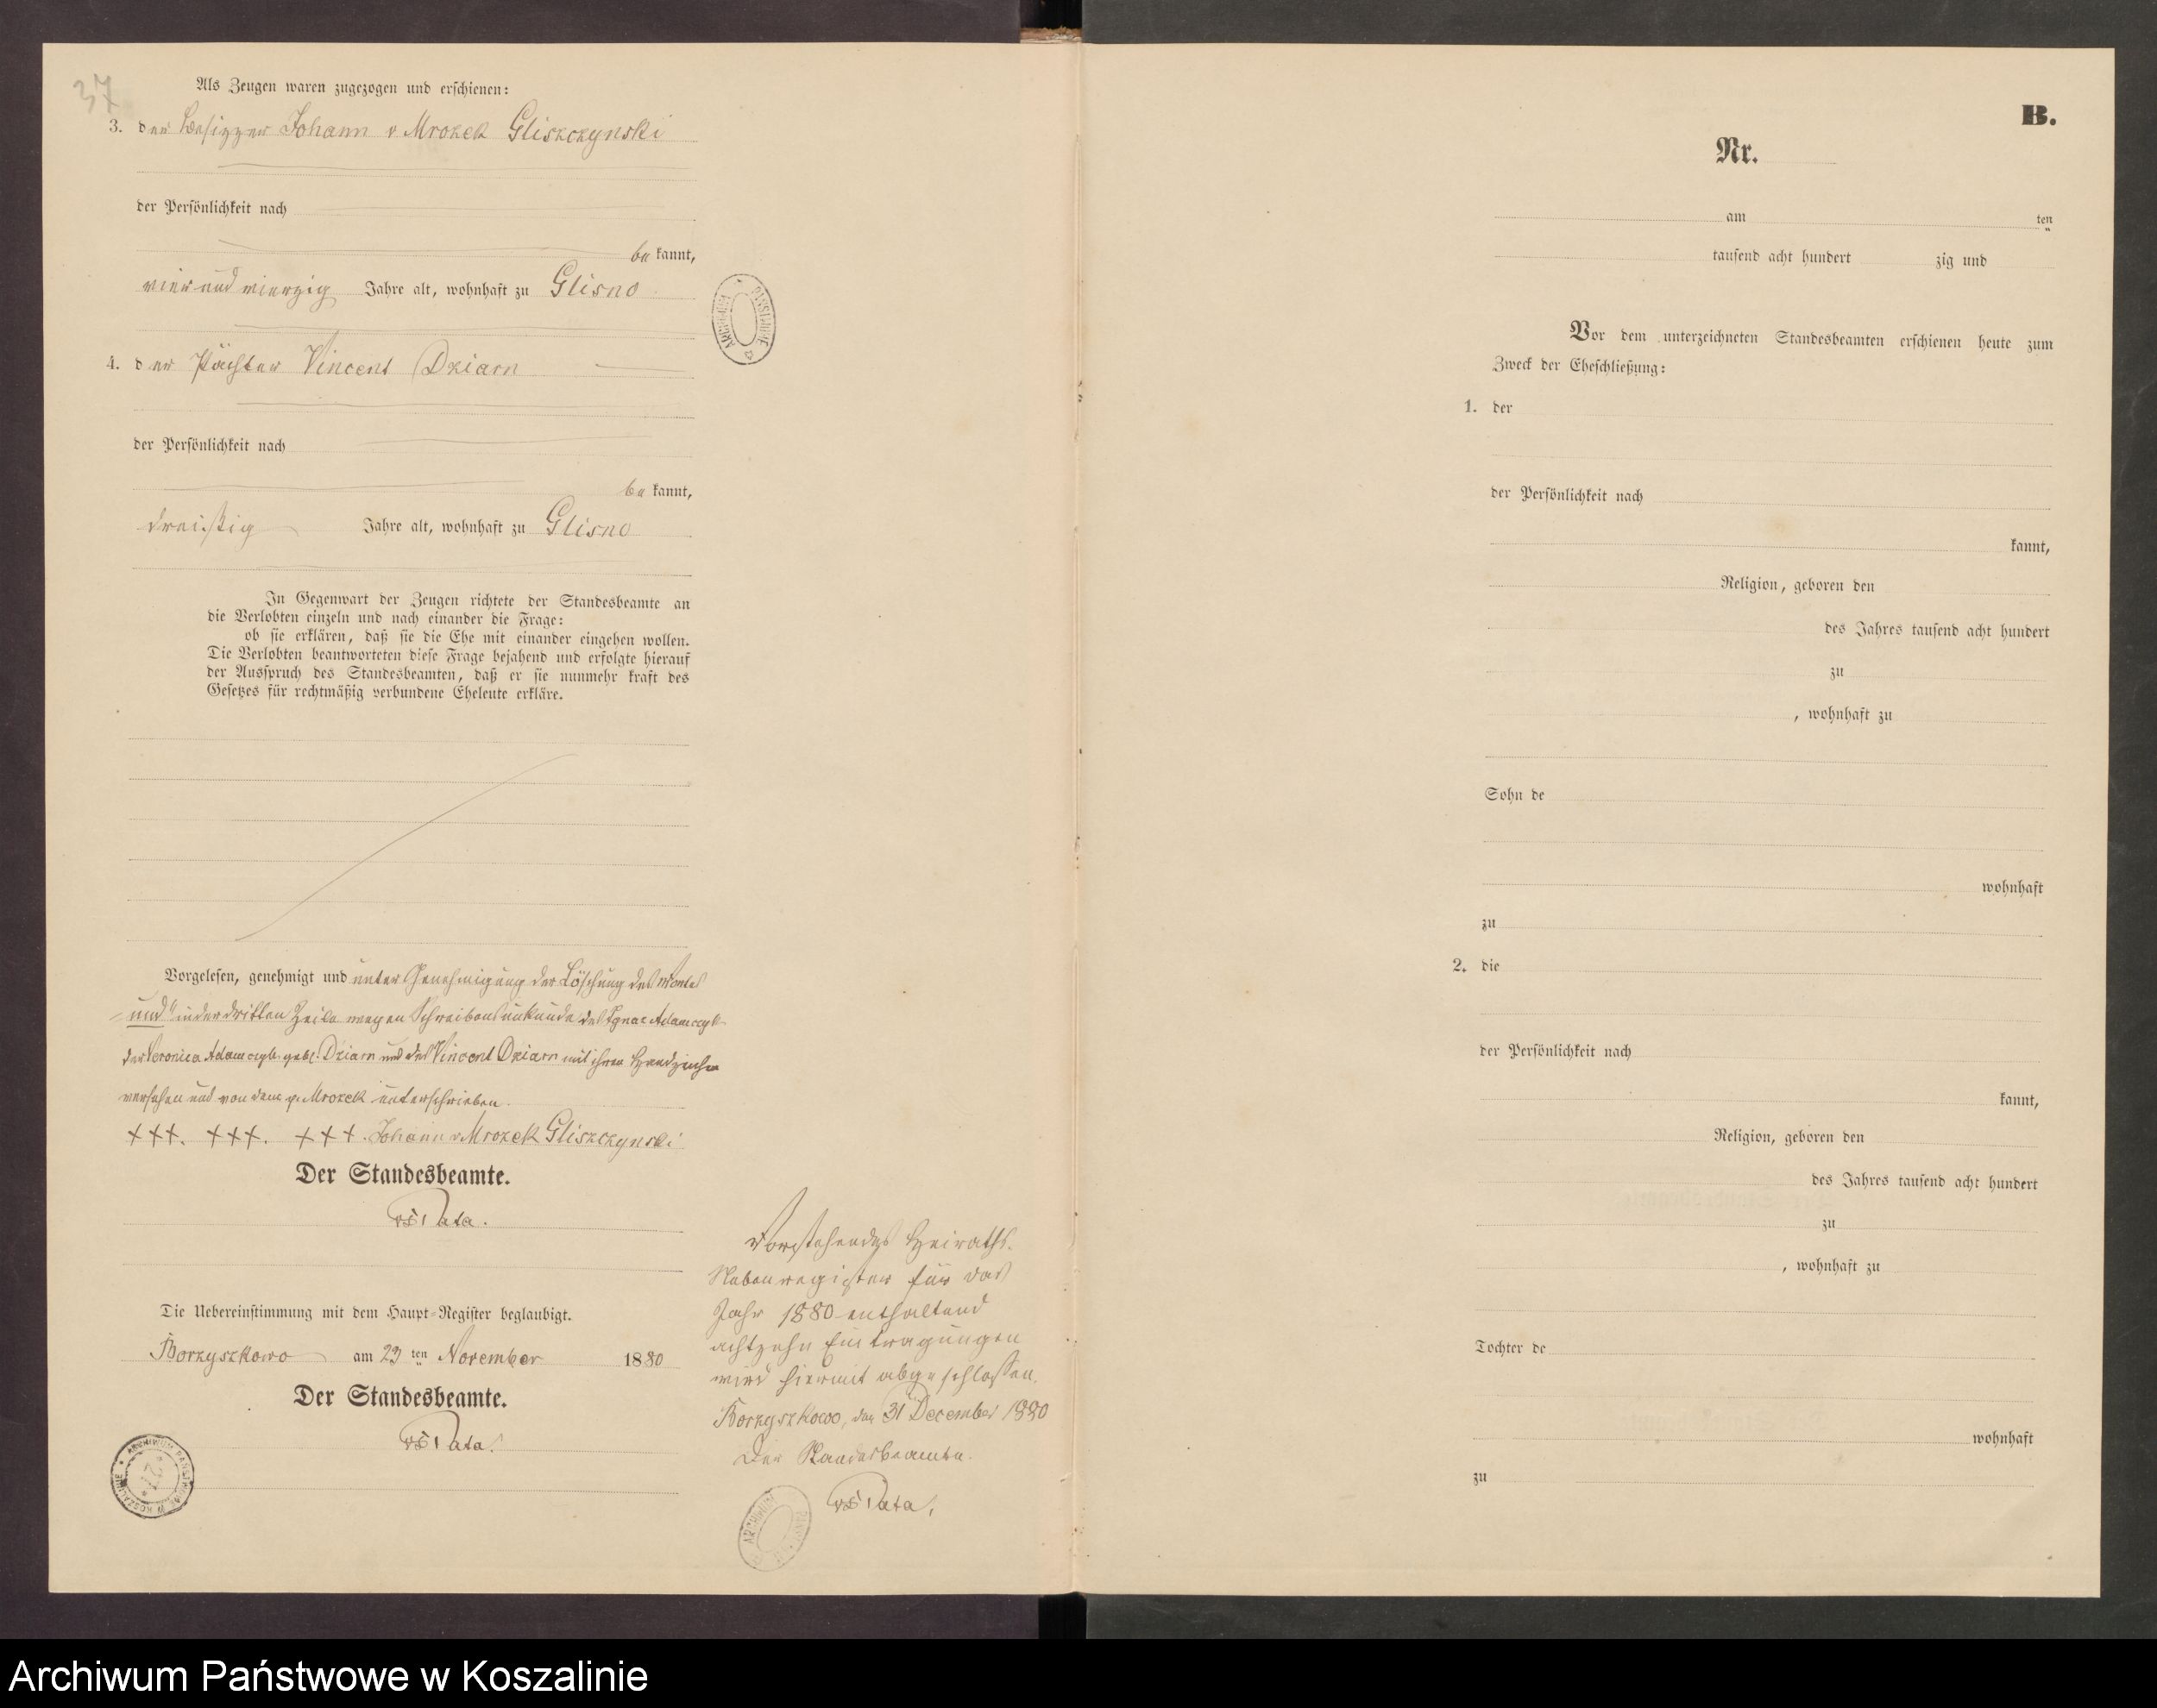 37
Als Zeugen waren zugezogen und erschienen:
3. der Besitzer Johann v Mrozek Gliszczynski
der Persönlichkeit nach
be kannt,
vier und vierzig Jahre alt, wohnhaft zu Glisno
4. der Pächter Vincent Dziarn
der Persönlichkeit nach
be kannt,
dreißig Jahre alt, wohnhaft zu Glisno
In Gegenwart der Zeugen richtete der Standesbeamte an
die Verlobten einzeln und nach einander die Frage:
ob sie erklären, daß sie die Ehe mit einander eingehen wollen.
Die Verlobten beantworteten diese Frage bejahend und erfolgte hierauf
der Ausspruch des Standesbeamten, daß er sie nunmehr kraft des
Gesetzes für rechtmäßig verbundene Eheleute erkläre.
Vorgelesen, genehmigt und unter Genehmigung der Löschung des Wortes
"und" in der dritten Zeile wegen Schreibensunkunde des Ignac Adamczyk
der Veronica Adamczyk geb. Dziarn und des Vincent Dziarn mit ihren Handzeichen
versehen und von dem v. Mrozek unterschrieben.
+++. +++. +++. Johann v Mrozek Gliszczynski
Der Standesbeamte.
Die Uebereinstimmung mit dem Haupt-Register beglaubigt.
Borzyszkowo am 23 ten November 1880
Der Standesbeamte.
ARCHIWUM PAŃSTWOWE W KOSZALINIE
ARCHIWUM PAŃSTWOWE
Vorstehendes Heiraths-
Nebenregister für das
Jahr 1880 enthaltend
achtzehn Eintragungen
wird hiermit abgeschlossen.
Borzyszkowo, den 31 December 1880
Der Standesbeamte.
ARCHIWUM
B.
Nr.
am ten
tausend acht hundert zig und
Vor dem unterzeichneten Standesbeamten erschienen heute zum
Zweck der Eheschließung:
1. der
der Persönlichkeit nach
kannt,
Religion, geboren den
des Jahres tausend acht hundert
zu
, wohnhaft zu
Sohn de
wohnhaft
zu
2. die
der Persönlichkeit nach
kannt,
Religion, geboren den
des Jahres tausend acht hundert
zu
, wohnhaft zu
Tochter de
wohnhaft
zu
Archiwum Państwowe w Koszalinie